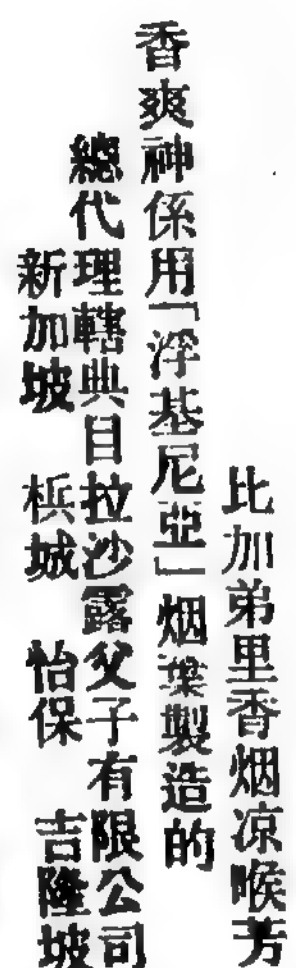 比加弟里香烟凉喉芳
香爽神係用「浮基尼亞」烟葉製造的
總代理轄典目拉沙露父子有限公司
新加坡 梹城 怡保 吉隆坡